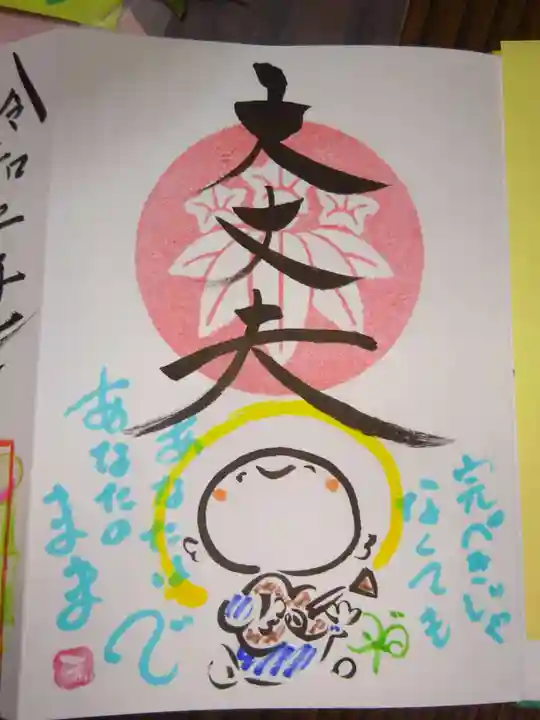 大丈夫
完ぺきじゃ
なくても
あなたは
あなたの
ままで
令和二年